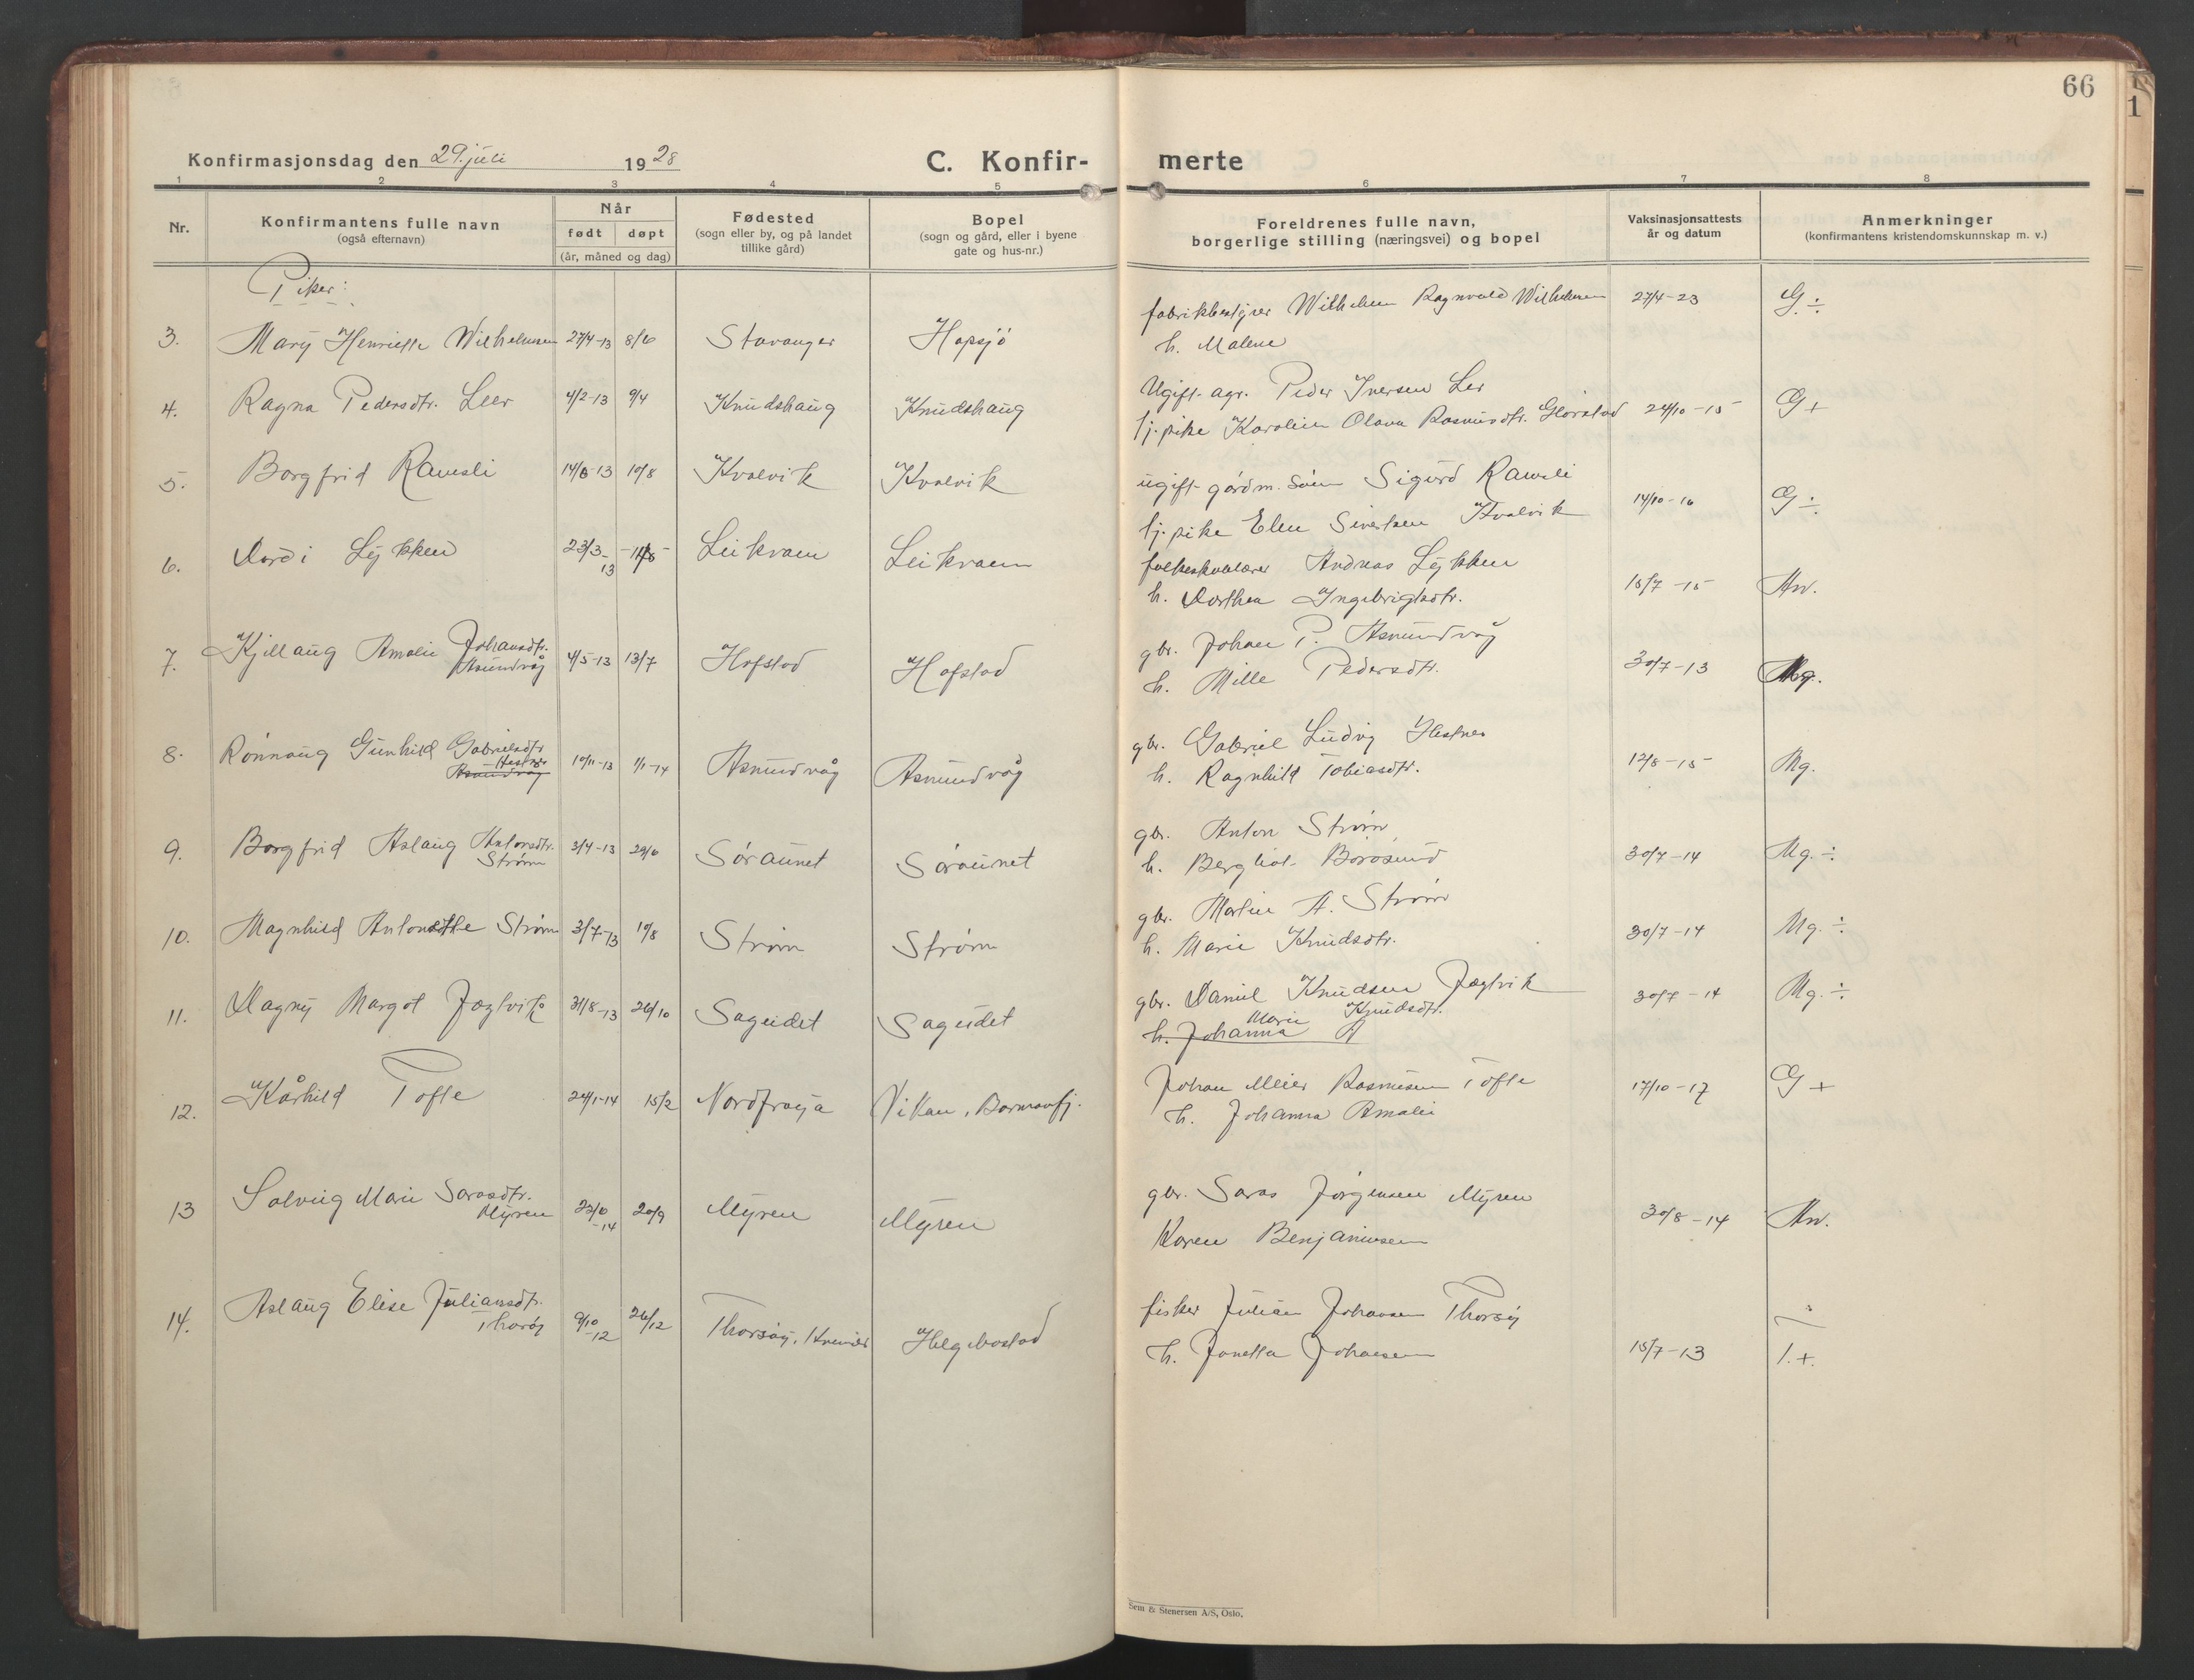 66
1
Konfirmasjonsdag den 29. juli 1928
C. Konfir- merte
1 2 3 4 5 6 7 8
Nr.
Konfirmantens fulle navn
(også efternavn)
Når
født døpt
(år, måned og dag)
Fødested
(sogn eller by, og på landet
tillike gård)
Bopel
(sogn og gård, eller i byene
gate og hus-nr.)
Foreldrenes fulle navn,
borgerlige stilling (næringsvei) og bopel
Vaksinasjonsattests
år og datum
Anmerkninger
(konfirmantens kristendomskunnskap m. v.)
Piker:
3. Mary Henriette Wilhelmsen 27/4-13 8/6 Stavanger Hopsjö
fabrikkbestyrer Wilhelm Ragnvald Wilhelmsen 27/4-23 G. ÷
h. Malene
4. Ragna Pedersdtr. Leer 4/2-13 9/4 Knudshaug Knudshaug
Ugift agr. Peder Iversen Ler
tj. pike Karoline Olava Rasmusdtr. Glørstad 24/10-15 G +
5. Borgfrid Ramsli 14/6-13 10/8 Kvalvik Kvalvik
ugift gårdm. sönn Sigurd Ramsli
tj. pike Elen Sivertsen Kvalvik 14/10-16 G ÷
6. Dordi Lykken 23/3-13 Leikvam Leikvam
folkeskolelærer Andreas Lykken
h. Dorthea Ingebrigtsdtr. 15/7-15 Av.
7. Kjellaug Amalie Johansdtr. 4/5-13 13/7 Hofstad Hofstad
Asmundvåg
gbr. Johan P. Asmundvåg
h. Mille Pedersdtr. 30/7-13 Mg.
8. Rönnaug Gunhild Gabrielsdtr. 10/11-13 1/1-14 Asmundvåg Asmundvåg
Hestnes
Asmundvåg
gbr. Gabriel Ludvig Hestnes
h. Ragnhild Tobiasdtr. 12/8-15 Mg.
9. Borgfrid Aslaug Antonsdtr. 3/4-13 29/6 Söraunet Söraunet
Strøm
gbr. Anton Strøm
h. Bergliot Borösund 30/7-14 Mg. ÷
10. Magnhild Antonette Strøm 3/7-13 10/8 Strøm Strøm
gbr. Martin A. Strøm
h. Marie Knudsdtr. 30/7-14 Mg. ÷
11. Dagny Margot Jægtvik 31/8-13 26/10 Sageidet Sageidet
gbr. Daniel Knudsen Jægtvik 30/7-14 Mg. ÷
Marie Knudsdtr.
h. Johanna A
12. Kårhild Tofte 24/1-14 15/2 Nordfrøya Vikan, Barmanfj.
Johan Meier Rasmusen Tofte 17/10-17 G +
h. Johanna Amalie
13 Solveig Marie Sarasdtr. 20/9 Myren Myren
Myren
gbr. Saras Jörgensen Myren
Karen Benjaminsen 30/8-14 Av.
14. Aslaug Elise Juliansdtr. 9/10-12 26/12 Thorsöy, Helgebostad
Thorsöy
fisker Julian Johansen Thorsöy
h. Janetta Johansen 15/7-13 T. +
Sem & Stenersen A/S, Oslo.